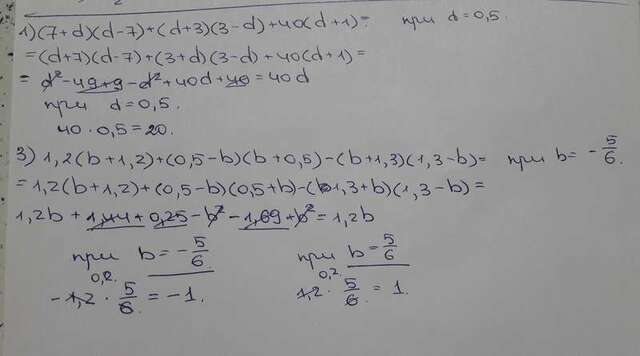 1) (7+d)(d-7)+(d+3)(3-d)+40(d+1)= при d=0,5.
=(d+7)(d-7)+(3+d)(3-d)+40(d+1)=
= d²-49+9-d²+40d+40=40d
при d=0,5.
40·0,5=20.
3) 1,2(b+1,2)+(0,5-b)(b+0,5)-(b+1,3)(1,3-b)= при b=-5/6.
=1,2(b+1,2)+(0,5-b)(0,5+b)-(1,3+b)(1,3-b)=
1,2b+1,44+0,25-b²-1,69+b²=1,2b
при b=-5/6 при b=5/6
0,2. 0,2.
-1,2·5/6=-1. 1,2·5/6=1.